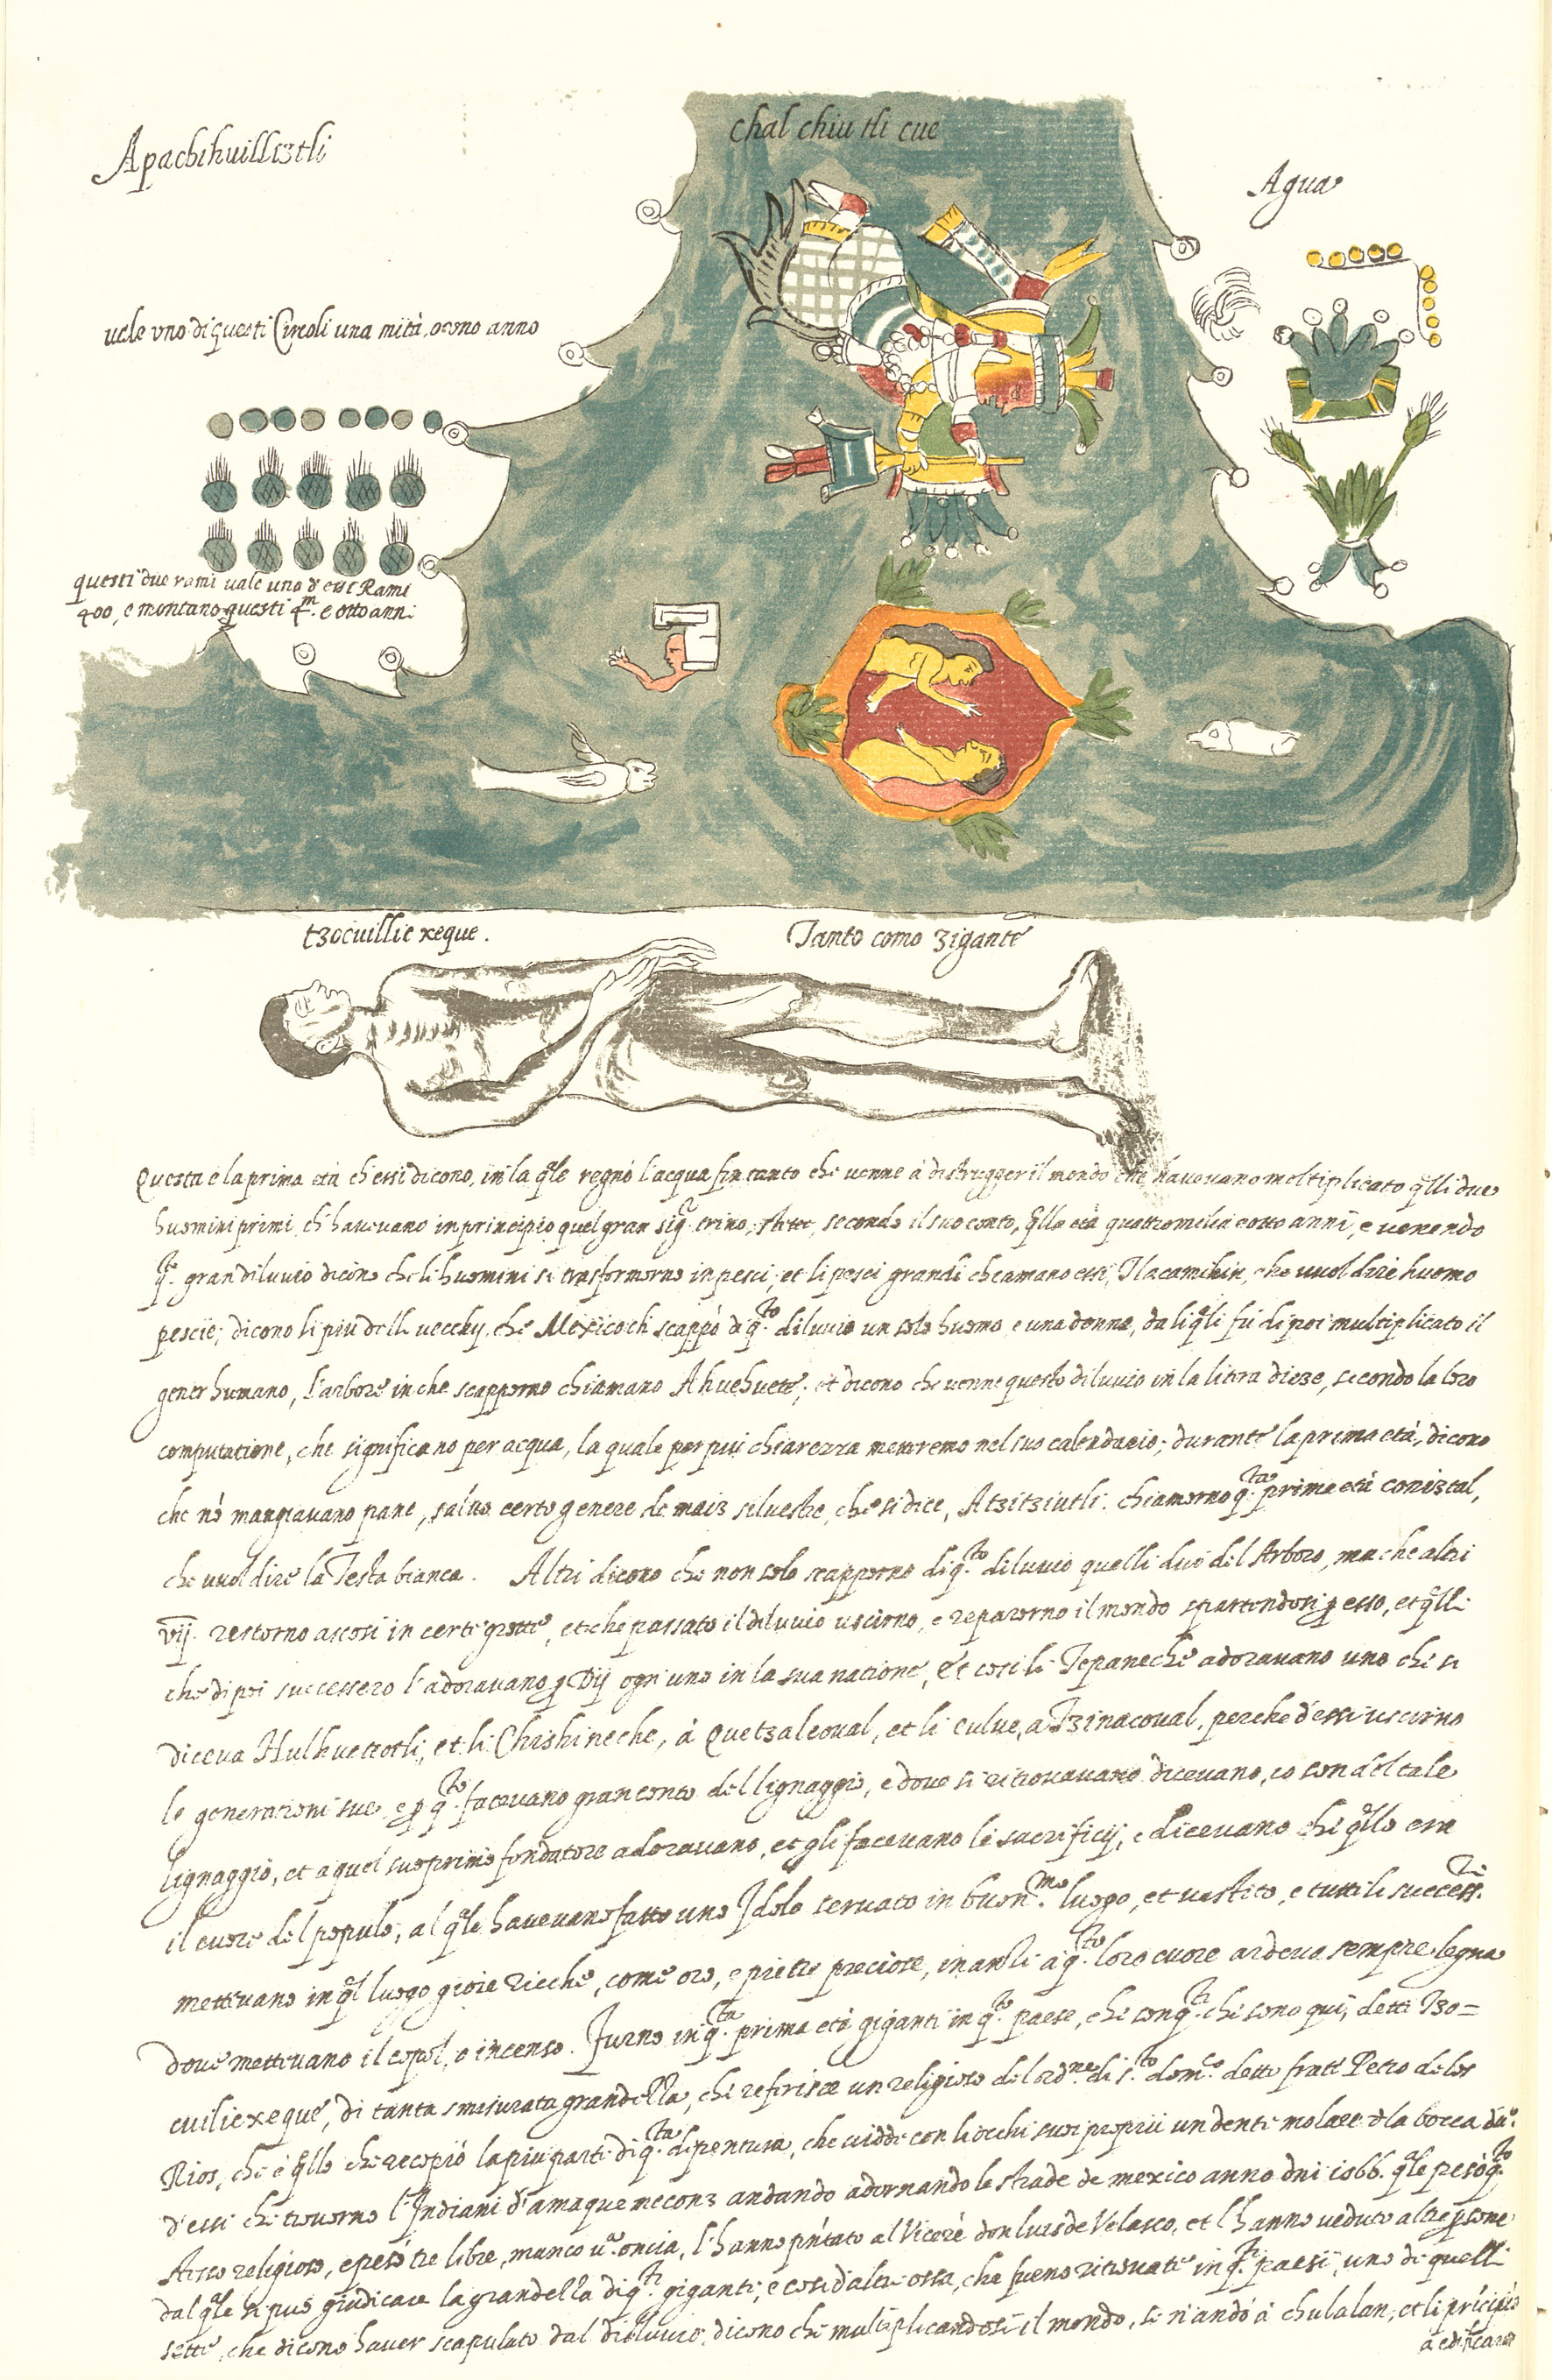 Apachihuilliztli
chal chiu tli cue
Agua
vale uno di questi Circoli una mità, o uno anno
questi due rami vale uno d'essi Rami
400, e montano questi 4.m e otto anni
tzocuillic xeque.
Tanto como zigante
Questa è la prima età ch'essi dicono, in la q.le regnò l'acqua fin tanto che venne à distrugger il mondo che havevano moltiplicato q.lli due
huomini primi, ch'havevano in principio quel gran sig.r trino; stette, secondo il suo conto, q.lla età quattromilia e otto anni, e venendo
q.to gran diluvio dicono che li huomini si trasformorno in pesci, et li pesci grandi chiamano essi, Tlacamichin, che vuol dire huomo
pescie; dicono li più delli vecchij che Mexicoch scappò di q.to diluvio un solo huomo e una donna, da li q.li fù di poi multiplicato il
gener humano, l'arbore in che scapporno chiamano Ahuehuete; et dicono che venne questo diluvio in la litira dieze, secondo la loro
computatione, che significano per acqua, la quale per più chiarezza metteremo nel suo calendario; durante la prima età, dicono
che nò mangiavano pane, salvo certo genere de maiz silvestre, che si dice, Atzitziutli. chiamorno q.ta prima età coniztal,
che vuol dire la Testa bianca. Altri dicono che non solo scapporno di q.to diluvio quelli dui del Arboro, ma che altri
vij. restorno ascosi in certe grotte, et che passato il diluvio uscirno, e reparorno il mondo spartendosi p esso, et q.lli
che di poi successero l'adoravano p Dij ogni uno in la sua natione, Et cosi li Tepaneche adoravano uno che si
diceva Hulhuetzotli, et li Chichineche, à Quetzalcoual, et li culve, a Tzinacoual, perche d'essi uscirno
le generationi sue, e p q.to facevano gran conto del lignaggio, e dove si ritrovavano dicevano, io son del tale
lignaggio, et a quel suo primo fondatore adoravano, et gli facevano li sacrificij, e dicevano che q.llo era
il cuore del populo; al q.le havevano fatto uno Idolo servato in buon.mo luogo, et vestito, e tutti li success.ri
mettevano in q.l luogo gioie ricche, come oro, e pietre preciose, inanzi a q.to loro cuore ardeva sempre legna
dove mettevano il copol, o incenso. Furno in q.ta prima età giganti in q.to paese, che son q.ti che sono qui, detti Tzo=
cuilicxeque, di tanta smisurata grandezza, che riferisce un religioso del ord.ne di s.to dom.co detto frate Petro de los
Rios, che è q.llo che recopiò la più parte di q.ta depentura, che vidde con li occhi suoi proprii un dente molare d la bocca d'u.o
d'essi che trovorno l'Indiani d'amaquemecon andando adornando le strade de mexico anno dni 1566. q.le pesò q.to
stesso religioso, e pesò tre libre, manco u.a oncia, l'hanno p.ntato al Vicerè don luis de Velasco, et l'hanno veduto altre persone
dal q.le si può giudicare la grandezza di q.ti giganti, e così d'altre ossa, che fueno ritrovate in q.ti paesi, uno di quelli
sette, che dicono haver scapulato dal diluvio, dicono che multiplicandosi il mondo, se n'andò à chulalan, et li prícipiò
à edificare